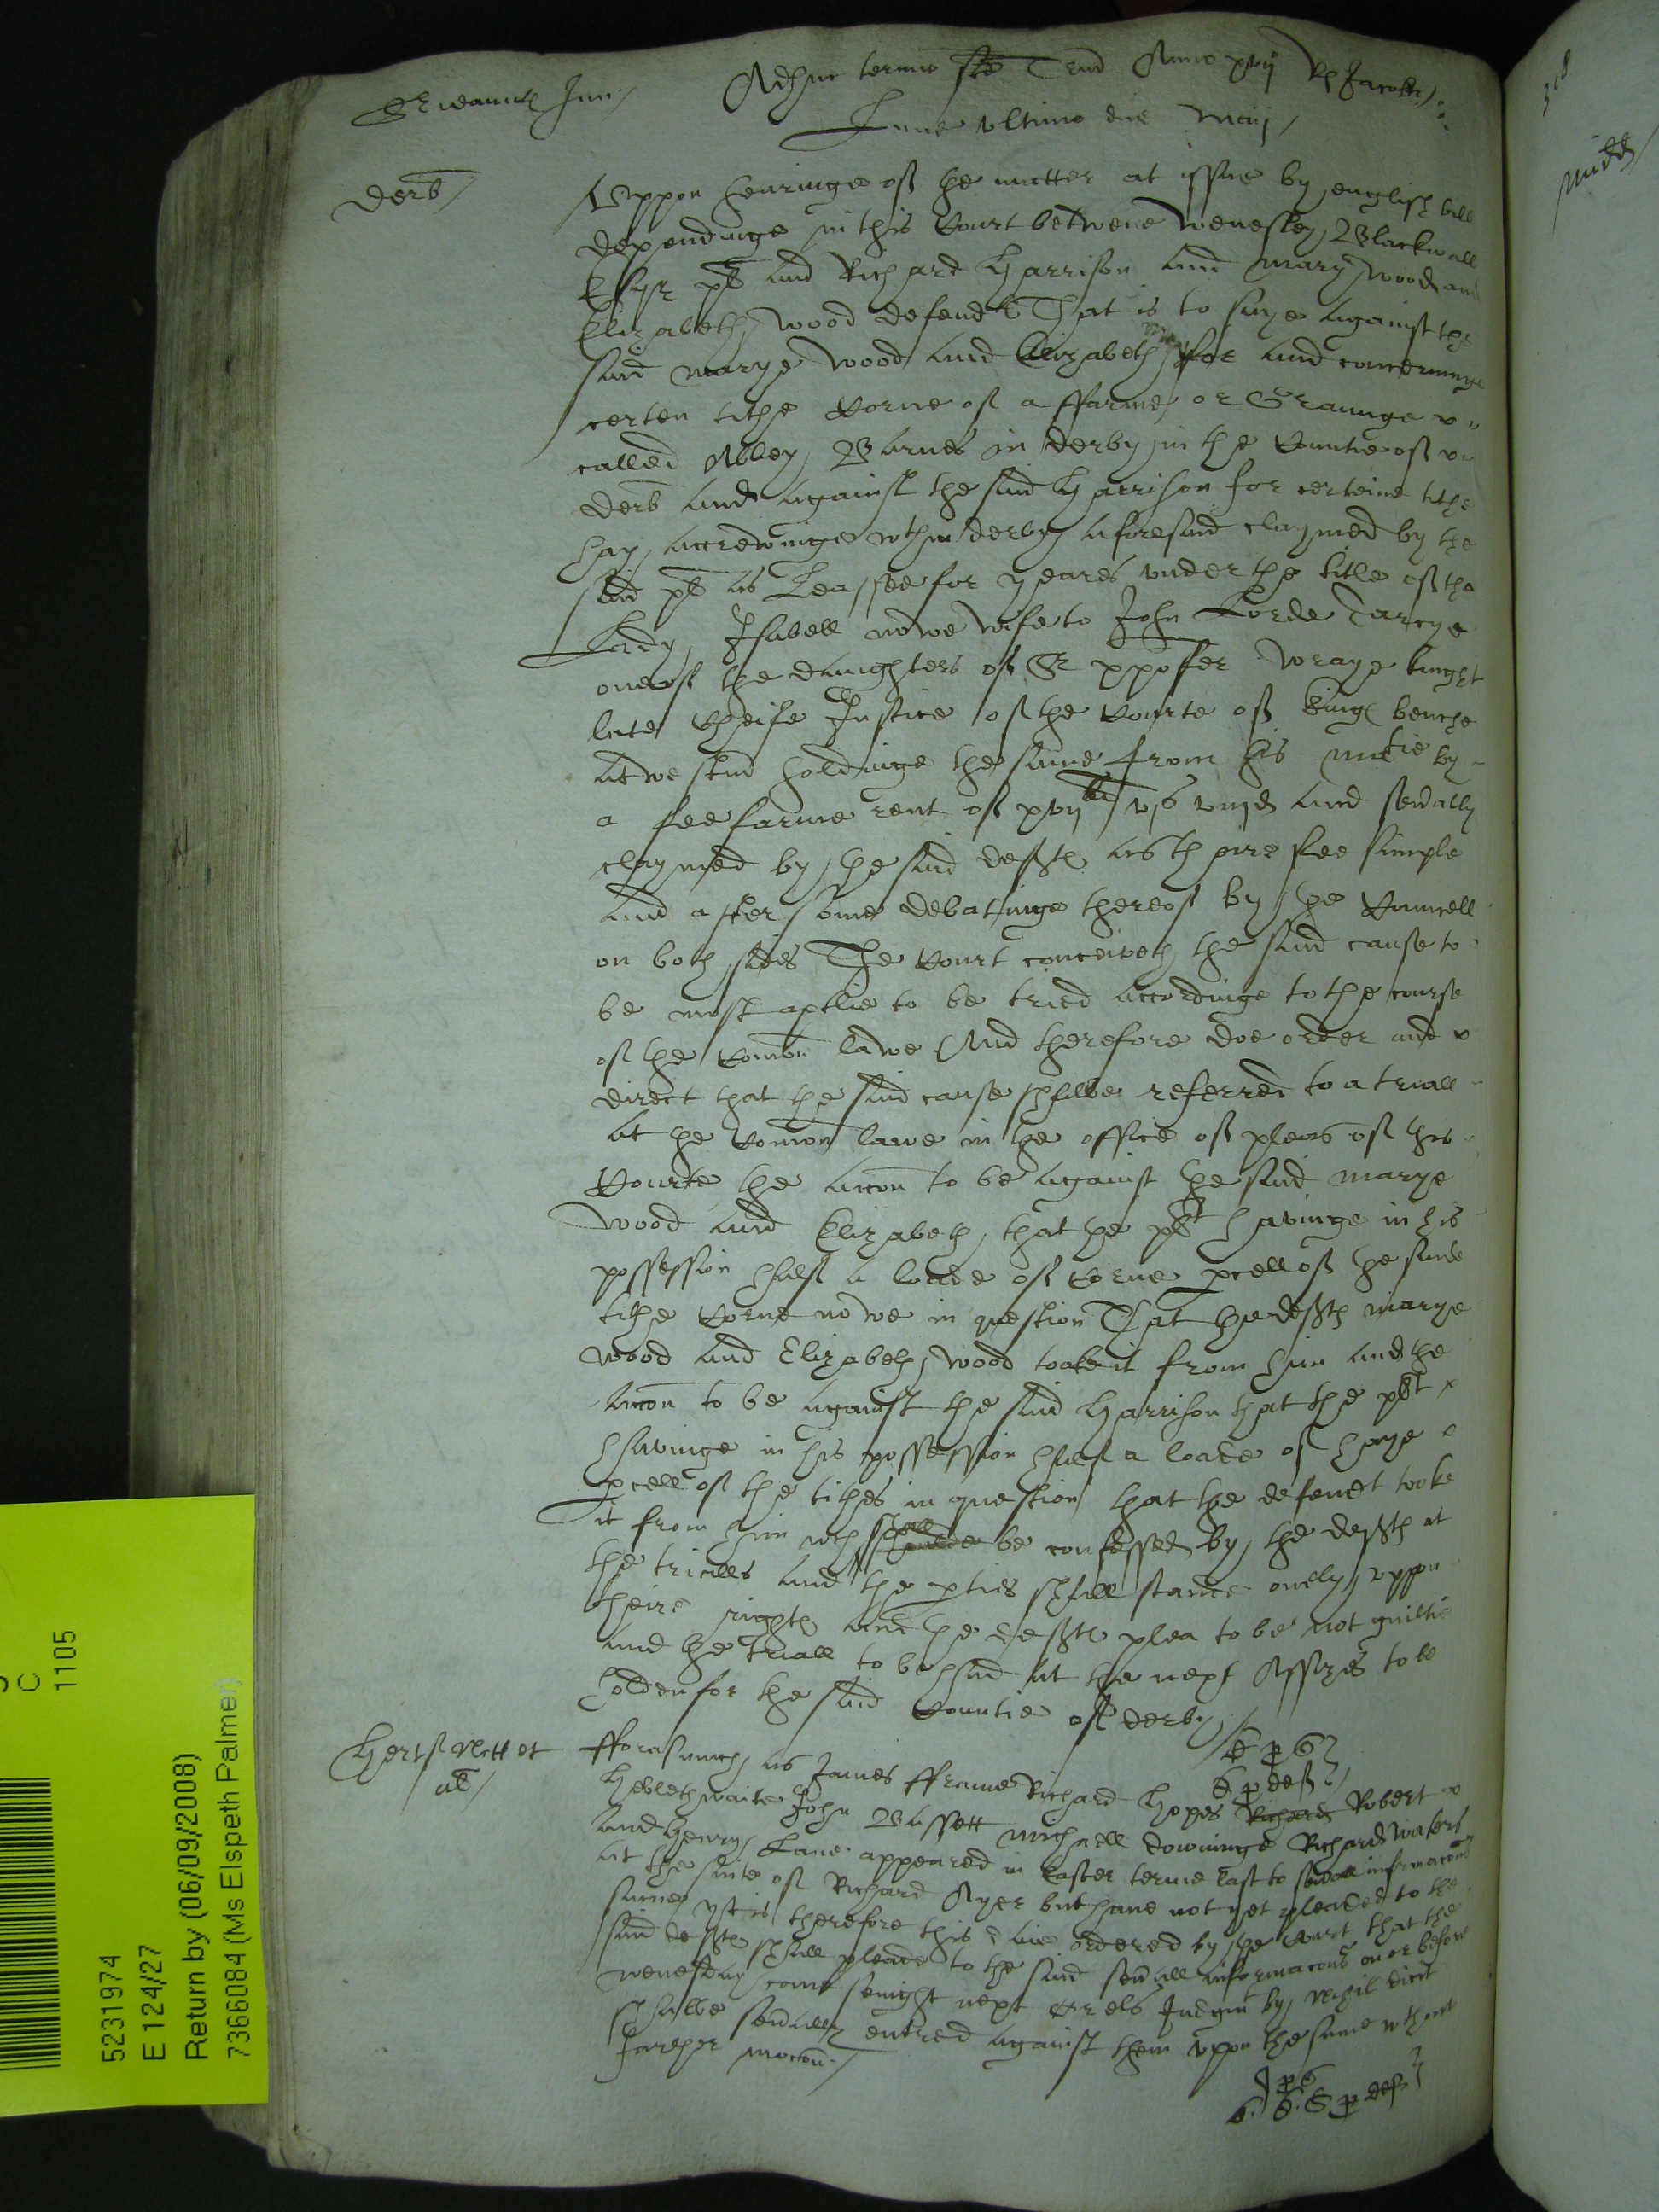 Adhuc termino Trin Anno xvij R Jacobi
Lune ultimo die Maij
Derb
Uppon hearinge of the matter at issue by english bill
dependinge in this Court betwene Wenesley Blackwall
Esqr plt and Richard Harrison and Mary Wood and
Elizabeth Wood defendts That is to saye against the
said Marye Wood and Elizabeth for and concerninge
certen tithe Corne of a ffarme or Graunge
called Abbey Barnes in Derby in the Countie of
Derb and against the said Harrison for certeine tithe
hay accrewinge wthin Derby aforesaid claymed by the
said plt as Leassee for yeares under the title of the
Lady Isabell nowe wife to John Lorde Darcye
one of the daughters of Sr xpofer Wraye knight
late Cheife Justice of the Courte of kings benche
whoe stand holdinge the same from his matie by
a fee farme rent of xvijli vjs viijd and sevally
claymed by the said defts as their fee simple
And after some debatinge thereof by the Councell
on both sides The Court conceiveth the said cause to
be most aptlie to be tried accordinge to the course
of the Comon lawe And therefore doe order and
direct that the said cause shalbe referred to a triall
at the Comon lawe in the office of pleas of this
Courte the accon to be against the said Marye
Wood and Elizabeth that the plt havinge in his
possession half a loade of Corne pcell of the saide
tithe Corne nowe in question That the defts Marye
Wood and Elizabeth Wood tooke it from him and the
accon to be against the said Harrison that the plt
havinge in his possession half a loade of haye
pcell of the tithes in question that the defendt tooke
it from him wch shall be confessed by the defts at
the trialls and the pties shall stande onely uppon
theire rights and the defts plea to be not guiltie
and the triall to be had at the next Assizes to be
holden for the said Countie of Derby
p deft
Hertf Midd et
al
fforasmuch as James fframe Richard Hopes Richard Robert
Heblethwaite John Bassett Michaell Downinge Richard Waters
and Henry Lane appeared in Easter terme last to sevall informacons
at the suite of Richard Ayer but have not yet pleaded to the
same yt is therefore this daie ordered by the Court that the
said defts shall pleade to the said sevall informacons on or before
wenesday come senight next or els Judgmt by Nihil dicit
shalbe sevally entred against them upon the same wthout
further mocon
p def
5231974
E 124/27
Return by (06/09/2008)
7366084 (Ms Elspeth Palmer)
C
1105
Midd